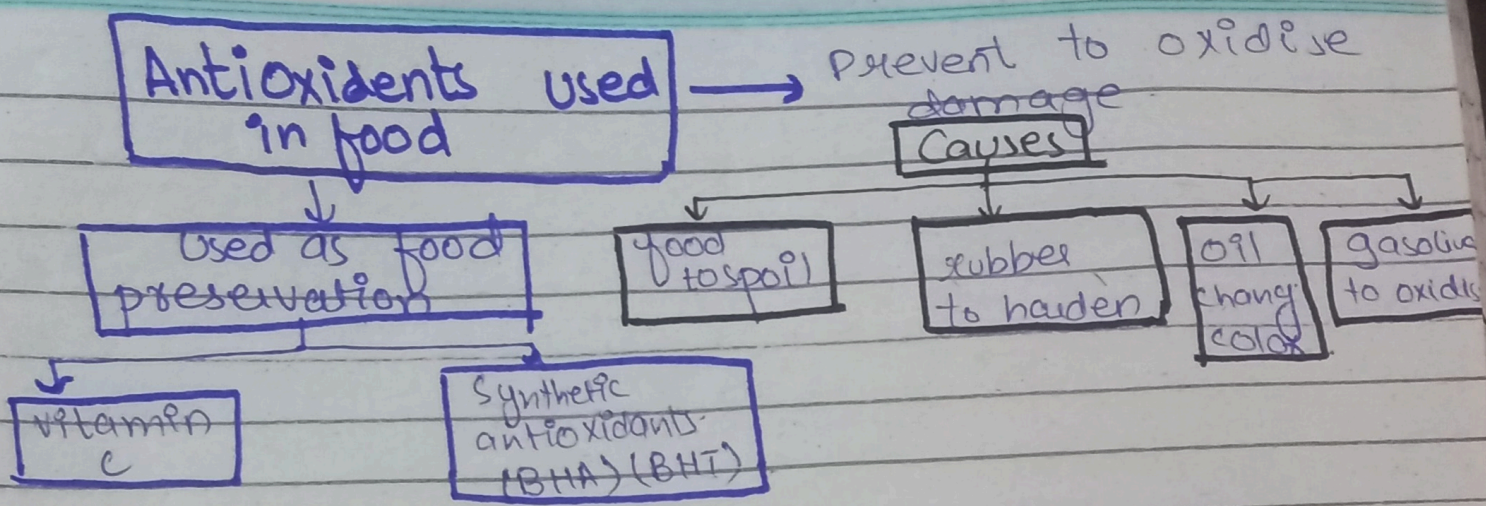 Antioxidents used
in food
Prevent to oxidise
damage
Causes
Used as food
preservation
food
to spoil
rubber
to harden
oil
chang
color
gasoline
to oxidis
vitamin
c
Synthetic
antioxidants
(BHA) (BHT)